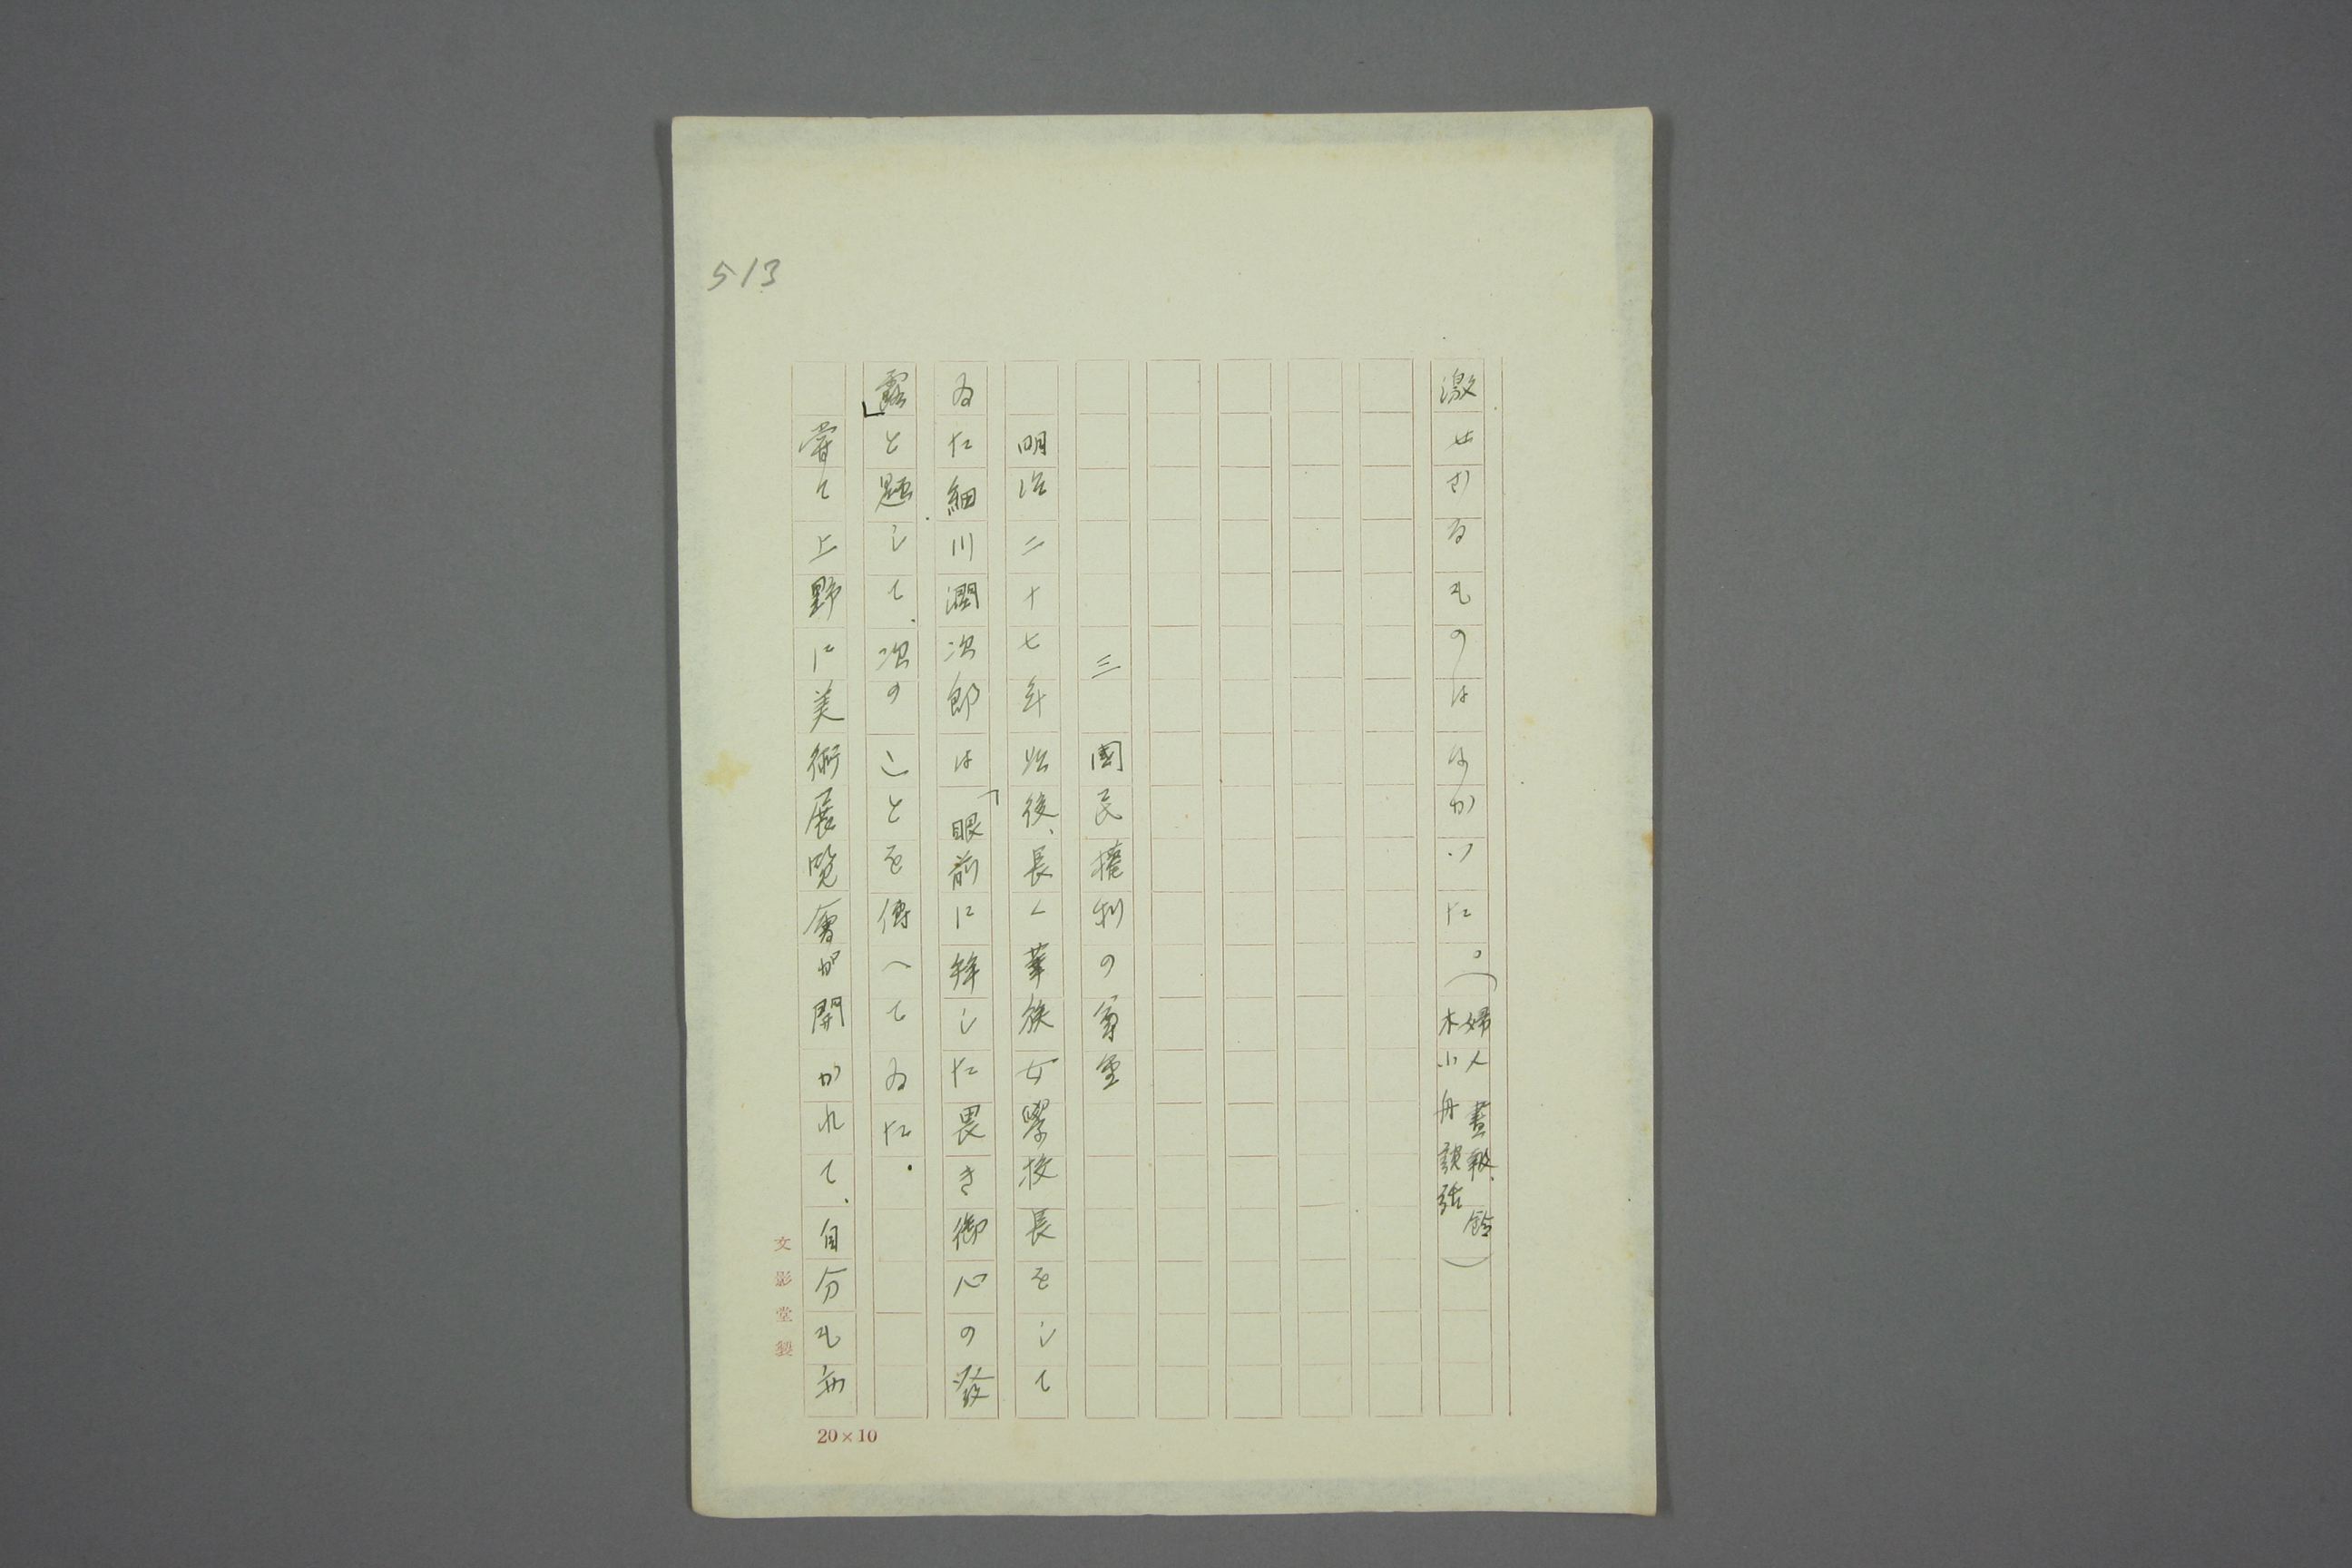 513
激せざるものはなかつた。(婦人畫報、鈴木小舟談話)
三 國民權利の尊重
明治二十七年以後、長く華族女學校長をして
ゐた細川潤次郎は「眼前に拜した畏き御心の發
露」と題して、次のことを傳へてゐた。
嘗て上野に美術展覽會が開かれて、自分も
文影堂製
20×10